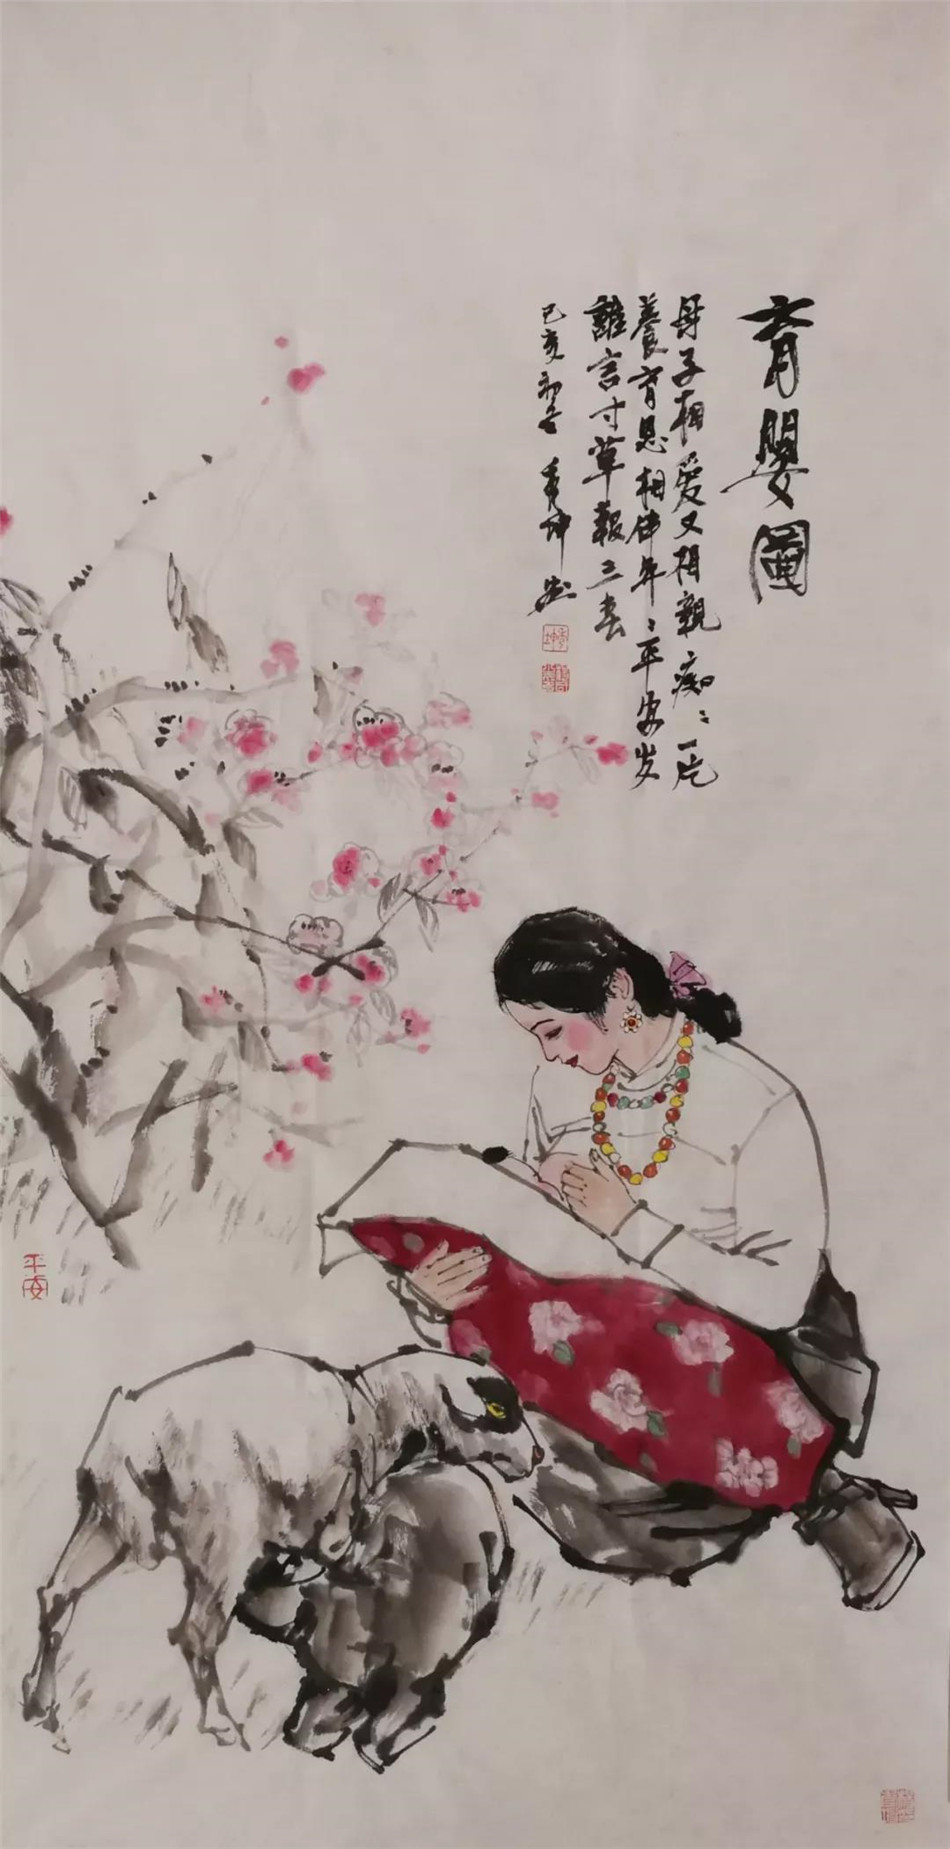 育嬰圖
母子相愛又相親痴〻一片
養育恩相伴年〻平安岁
誰言寸草報三春
己亥初冬秀坤画
秀坤
平安